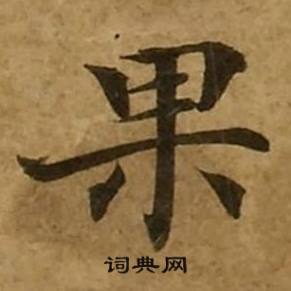 果
词典网